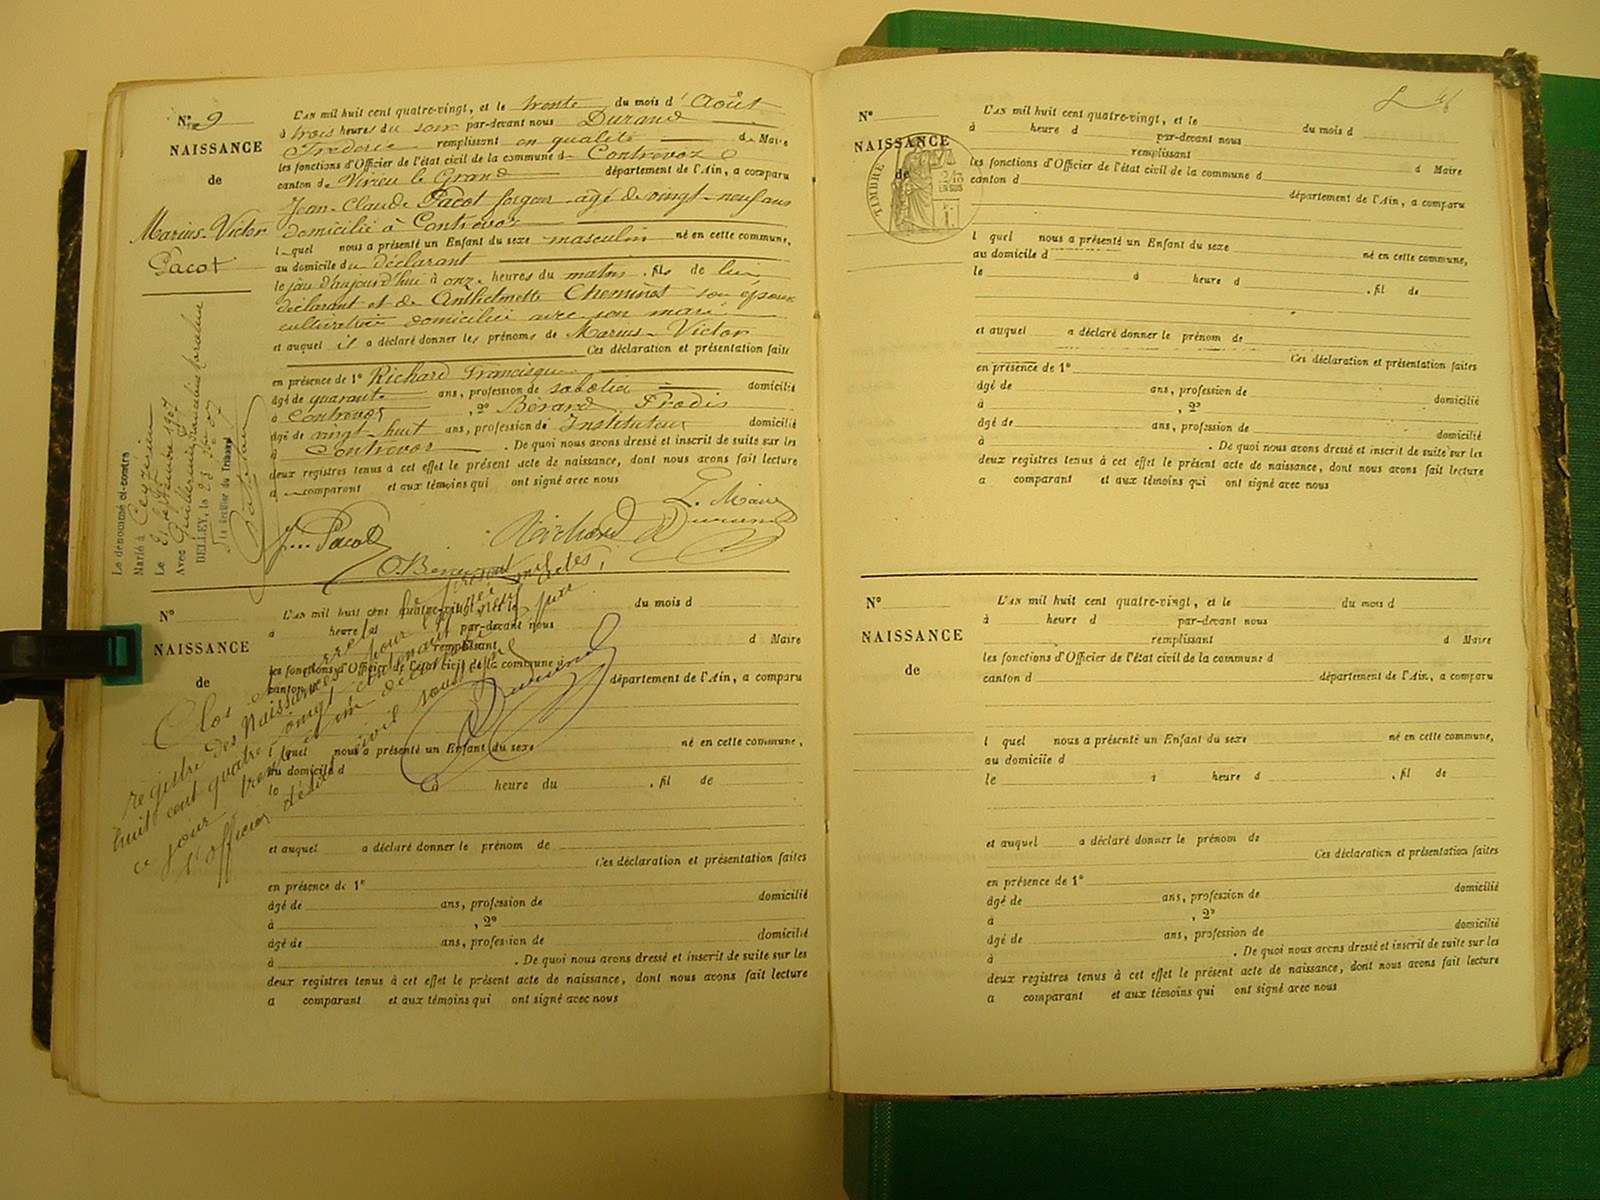 N° 9
NAISSANCE
de
Marius-Victor
Pacot
L'AN mil huit cent quatre-vingt, et le trente du mois d'Août
à trois heures du soir par-devant nous Durand
Frédéric remplissant en qualité de Maire
les fonctions d'Officier de l'état civil de la commune de Contrevoz
canton de Virieu le Grand département de l'Ain, a comparu
Jean-Claude Pacot forgeur agé de vingt-neuf ans
domicilié à Contrevoz
lequel nous a présenté un Enfant du sexe masculin né en cette commune,
au domicile du déclarant
le jour d'aujourd'hui à onze heures du matin, fils de lui
déclarant et de Anthelmette Cheminet son épouse
cultivatrice domiciliée avec son mari
et auquel il a déclaré donner les prénoms de Marius-Victor
Ces déclaration et présentation faites
en présence de 1° Richard Francisque
âgé de quarante ans, profession de sabotier domicilié
à Contrevoz, 2° Bérard Prodis
âgé de vingt-huit ans, profession de Instituteur domicilié
à Contrevoz. De quoi nous avons dressé et inscrit de suite sur les
deux registres tenus à cet effet le présent acte de naissance, dont nous avons fait lecture
a comparant et aux témoins qui ont signé avec nous
Le Maire
J. Pacot Richard Durand
Le dénommé ci-contre
Marié à Ceyzérieu
Le
Avec
BELLEY, le 25
Le Greffier du Tribunal
N°
NAISSANCE
de
L'AN mil huit cent quatre-vingt, et le du mois d
à heure d par-devant nous
remplissant d Maire
les fonctions d'Officier de l'état civil de la commune d
canton d département de l'Ain, a comparu
l quel nous a présenté un Enfant du sexe né en cette commune,
au domicile d
le à heure du , fil de
et auquel a déclaré donner le prénom de
Ces déclaration et présentation faites
en présence de 1°
âgé de ans, profession de domicilié
à , 2°
âgé de ans, profession de domicilié
à . De quoi nous avons dressé et inscrit de suite sur les
deux registres tenus à cet effet le présent acte de naissance, dont nous avons fait lecture
a comparant et aux témoins qui ont signé avec nous
Clos et arrêté le présent
registre des Naissances pour l'année mil
huit cent quatre vingt contenant neuf actes,
ce jour trente un décembre
l'officier de l'état civil soussigné
Durand
N°
NAISSANCE
de
TIMBRE
EN SUS
L'AN mil huit cent quatre-vingt, et le du mois d
à heure d par-devant nous
remplissant d Maire
les fonctions d'Officier de l'état civil de la commune d
canton d département de l'Ain, a comparu
l quel nous a présenté un Enfant du sexe né en cette commune,
au domicile d
le à heure d , fil de
et auquel a déclaré donner le prénom de
Ces déclaration et présentation faites
en présence de 1°
âgé de ans, profession de domicilié
à , 2°
âgé de ans, profession de domicilié
à . De quoi nous avons dressé et inscrit de suite sur les
deux registres tenus à cet effet le présent acte de naissance, dont nous avons fait lecture
a comparant et aux témoins qui ont signé avec nous
N°
NAISSANCE
de
L'AN mil huit cent quatre-vingt, et le du mois d
à heure d par-devant nous
remplissant d Maire
les fonctions d'Officier de l'état civil de la commune d
canton d département de l'Ain, a comparu
l quel nous a présenté un Enfant du sexe né en cette commune,
au domicile d
le à heure d , fil de
et auquel a déclaré donner le prénom de
Ces déclaration et présentation faites
en présence de 1°
âgé de ans, profession de domicilié
à , 2°
âgé de ans, profession de domicilié
à . De quoi nous avons dressé et inscrit de suite sur les
deux registres tenus à cet effet le présent acte de naissance, dont nous avons fait lecture
a comparant et aux témoins qui ont signé avec nous